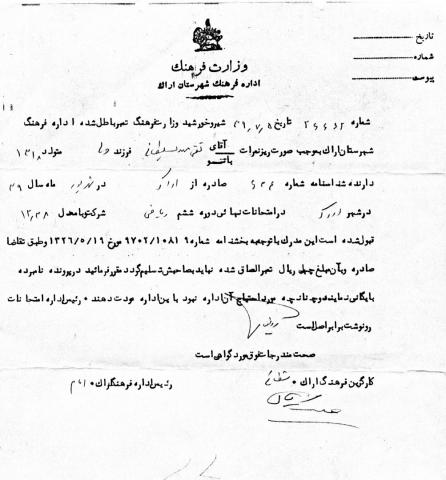 تاریخ
شماره
پیوست
وزارت فرهنگ
اداره فرهنگ شهرستان اراک
شماره تاریخ ۳۹/۷/۵ شیروخورشید وزارت فرهنگ تمبر باطل شده اداره فرهنگ
شهرستان اراک بموجب صورت ریز نمرات آقای فرزند متولد ۱۳۱۸
بانو
دارنده شناسنامه شماره صادره از اراک در ماه سال ۳۹
در شهر اراک در امتحانات نهائی دوره ششم ریاضی شرکت و با معدل ۱۲/۳۸
قبول شده است این مدرک با توجه به بخشنامه شماره ۹۷۰۲/۱۰۸۱۹ مورخ ۱۳۲۶/۵/۱۹ و طبق تقاضا
صادر و بآن مبلغ چهل ریال تمبر الصاق شده نباید بصاحبش تسلیم گردد مقرر فرمائید در پرونده نامبرده
بایگانی نمایند و چنانچه مورد احتیاج آن اداره نبود با این اداره عودت دهند ۰ رئیس اداره امتحانات
رونوشت برابر اصل است
صحت مندرجات فوق مورد گواهی است
کارگزین فرهنگ اراک ۰
رئیس اداره فرهنگ اراک ۰